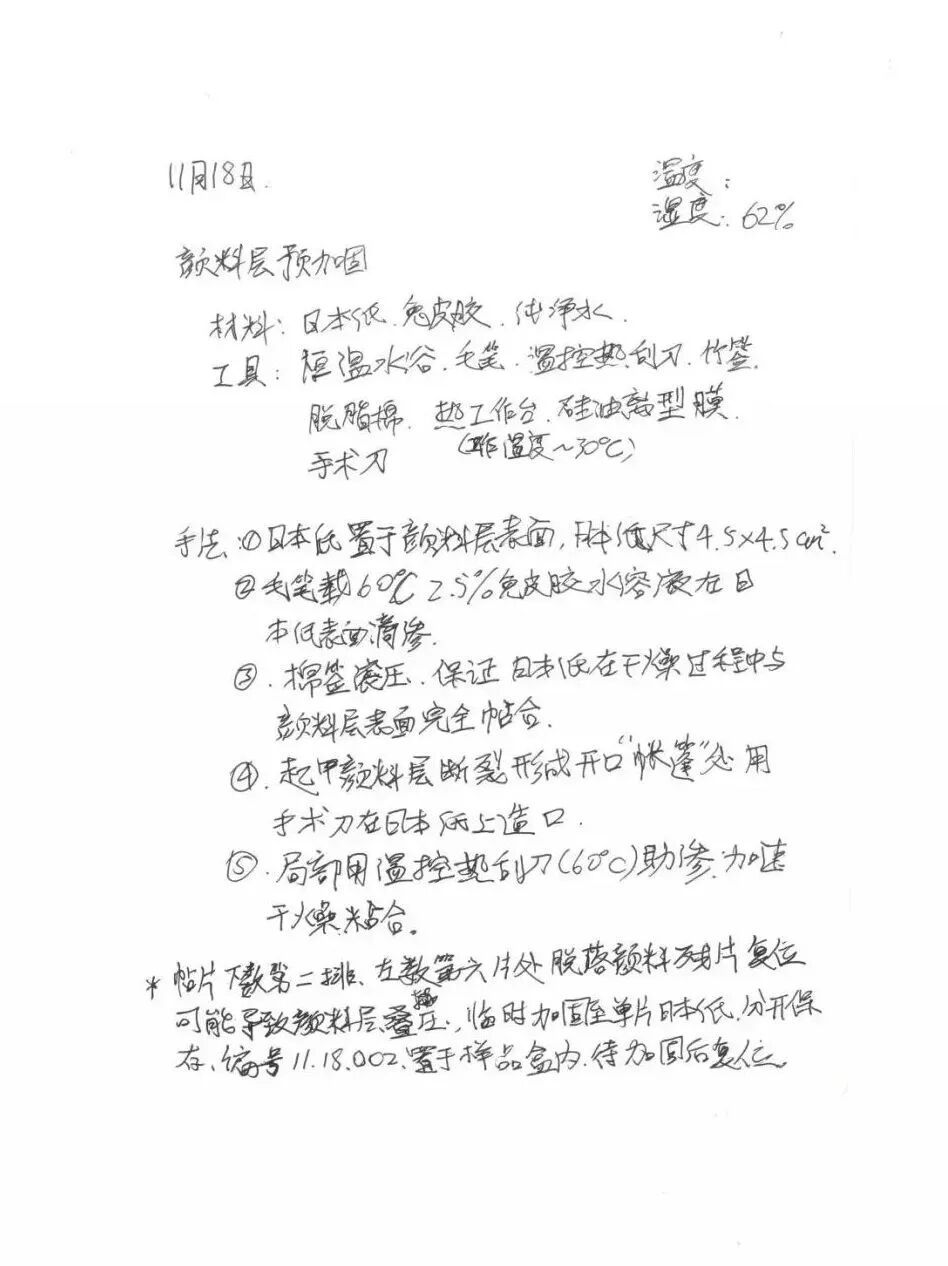 11月18日.
温度：
湿度：62%
颜料层预加固
材料：日本纸.兔皮胶.纯净水.
工具：恒温水浴.毛笔.温控热刮刀.竹签.
脱脂棉.热工作台.硅油离型膜.
手术刀 (工作温度~30℃)
手法：①日本纸置于颜料层表面,日本纸尺寸4.5×4.5cm².
②毛笔载60℃ 2.5%兔皮胶水溶液在日
本纸表面滴渗.
③.棉签滚压.保证日本纸在干燥过程中与
颜料层表面完全帖合.
④.起甲颜料层断裂形成开口“帐篷”处用
手术刀在日本纸上造口.
⑤.局部用温控热刮刀(60℃)助渗.加速
干燥粘合。
*帖片下数第二排.左数第六片处脱落颜料残片复位
可能导致颜料层叠压.临时加固至单片日本纸.分开保
存.编号11.18.002.置于样品盒内.待加固后复位.